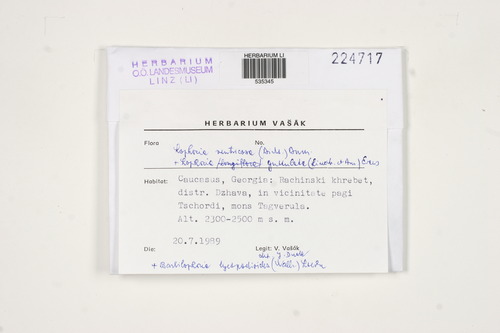 HERBARIUM
O.Ö. LANDESMUSEUM
LINZ (LI)
HERBARIUM LI
535345
224717
HERBARIUM VAŠÁK
Flora No.
Lophozia ventricosa (Dicks.) Dum.
+ Lophozia longiflora guttulata (Lindb. et Arn.) Evans
Habitat: Caucasus, Georgia: Rachinski khrebet,
distr. Dzhava, in vicinitate pagi
Tschordi, mons Tagverula.
Alt. 2300-2500 m s. m.
Die: 20.7.1989
Legit: V. Vašák
det. J. Duda
+ Barbilophozia lycopodioides (Wallr.) Loeske